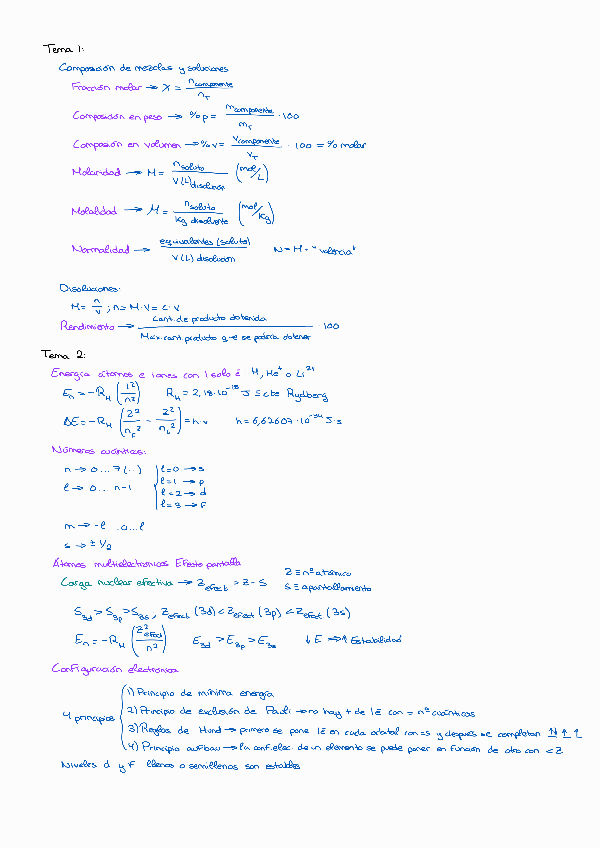 Tema 1:
Composición de mezclas y soluciones
Fracción molar → X = n componente / n_T
Composición en peso → %p = m componente / m_T · 100
Composión en volumen → %v = V componente / V_T · 100 = % molar
Molaridad → M = n soluto / V(L) disolución (mol/L)
Molalidad → M = n soluto / Kg disolvente (mol/Kg)
Normalidad → equivalentes (soluto) / V(L) disolución N = M · "valencia"
Disoluciones:
M = n/V ; n = M · V = c · v
Rendimiento → Cant. de producto obtenida / Máx. cant. producto q-e se podría obtener · 100
Tema 2:
Energía átomos e iones con 1 solo é H, He⁺ o Li²⁺
E_n = -R_H (1²/n²) R_H = 2,18·10⁻¹⁸ J ≡ cte Rydberg
ΔE = -R_H (Z²/n_F² - Z²/n_i²) = h·ν h = 6,62607·10⁻³⁴ J·s
Números cuánticos:
n → 0...7(..)
l → 0... n-1
l=0 → s
l=1 → p
l=2 → d
l=3 → F
m → -l ..0...l
s → ± 1/2
Átomos multielectrónicos Efecto pantalla
Carga nuclear efectiva → Z efect = Z - S
Z ≡ nº atómico
S ≡ apantallamiento
S_3d > S_3p > S_3s, Z efect (3d) < Z efect (3p) < Z efect (3s)
E_n = -R_H (Z² efect / n²) E_3d > E_3p > E_3s ↓E ⇒ ↑ Estabilidad
Configuración electrónica
4 principios
1) Principio de mínima energía
2) Principio de exclusión de Pauli → no hay + de 1é con = nº cuánticos
3) Reglas de Hund → primero se pone 1é en cada orbital con = s y después se completan ↑↓ ↑ ↑
4) Principio aufbau → la conf. elec. de un elemento se puede poner en función de otro con < Z
Niveles d y F llenos o semillenos son estables